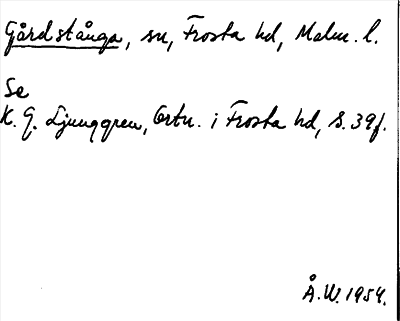 Gårdstånga, sn, Frosta hd, Malm. l.
Se
K. G. Ljunggren, Ortn. i Frosta hd, s. 39f.
Å.W. 1954.